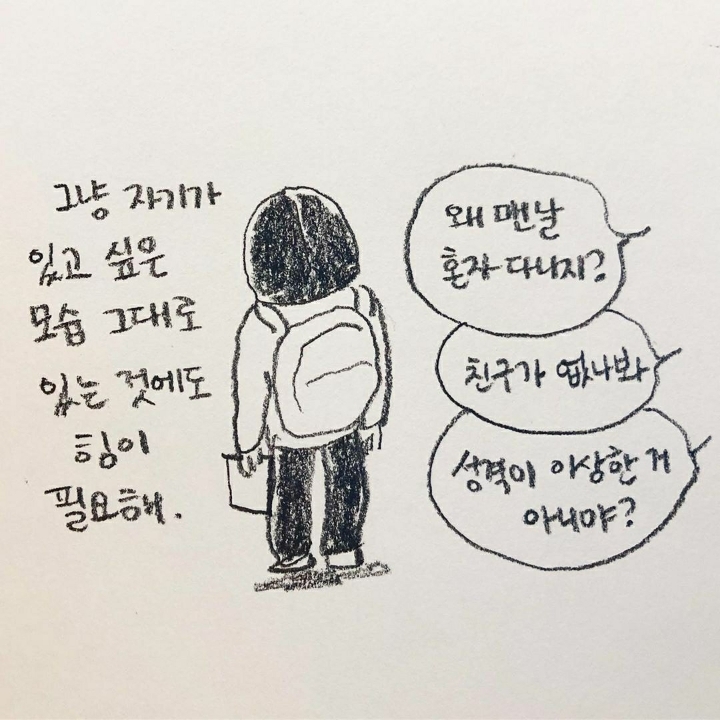 그냥 자기가
있고 싶은
모습 그대로
있는 것에도
힘이
필요해.
왜 맨날
혼자 다니지?
친구가 없나봐
성격이 이상한 거
아니야?